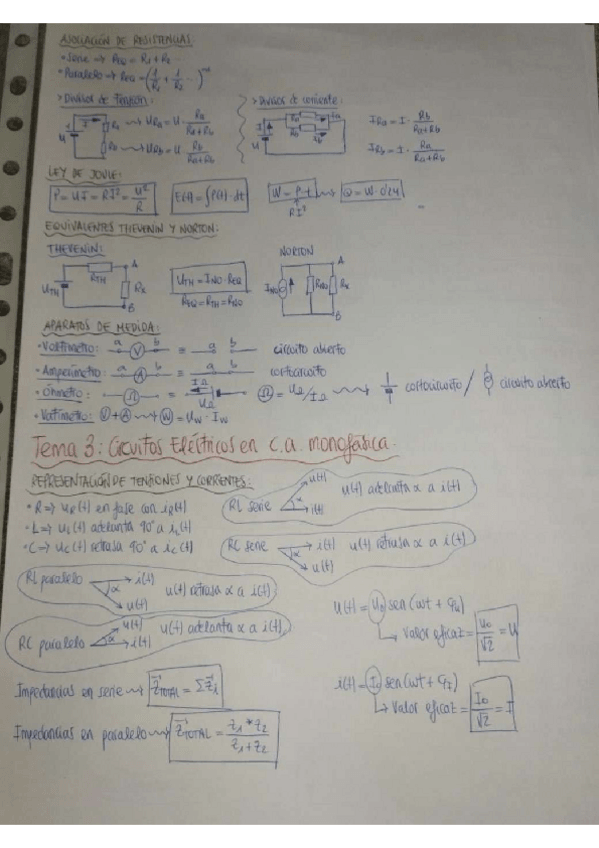 ASOCIACIÓN DE RESISTENCIAS:
• Serie ⇒ REQ = R1 + R2 ...
• Paralelo ⇒ REQ = (1/R1 + 1/R2 ...)^-1
> Divisor de Tensión: > Divisor de corriente:
I R1 ⇝ URa = U · Ra/(Ra+Rb) I Ra Ia IRa = I · Rb/(Ra+Rb)
U ⇝ URb = U · Rb/(Ra+Rb) U Rb Ib IRb = I · Ra/(Ra+Rb)
LEY DE JOULE:
P = UI = RI² = U²/R E(t) = ∫P(t)·dt W = P·t ⇝ Q = W·0'24
RI²
EQUIVALENTES THEVENIN Y NORTON:
THEVENIN: NORTON
UTH RTH RX A B UTH = INO · REQ INO RNO RX A B
REQ = RTH = RNO
APARATOS DE MEDIDA:
• Voltímetro: a V b ≡ a b circuito abierto
• Amperímetro: a A b ≡ a b cortocircuito
• Óhmetro: Ω ≡ IΩ UΩ Ω = UΩ/IΩ ⇝ cortocircuito / circuito abierto
• Vatímetro: V + A ⇝ W = UW · IW
Tema 3: Circuitos Eléctricos en c.a. monofásica.
REPRESENTACIÓN DE TENSIONES Y CORRIENTES:
• R ⇒ uR(t) en fase con iR(t)
• L ⇒ uL(t) adelanta 90° a iL(t)
• C ⇒ uC(t) retrasa 90° a iC(t)
RL serie u(t) α i(t) u(t) adelanta α a i(t)
RC serie α i(t) u(t) u(t) retrasa α a i(t)
RL paralelo α i(t) u(t) u(t) retrasa α a i(t)
RC paralelo u(t) α i(t) u(t) adelanta α a i(t)
u(t) = U0 sen(ωt + φu)
↳ Valor eficaz = U0/√2 = U
i(t) = I0 sen(ωt + φI)
↳ Valor eficaz = I0/√2 = I
Impedancias en serie ⇝ ZTOTAL = ΣZi
Impedancias en paralelo ⇝ ZTOTAL = Z1*Z2/(Z1+Z2)